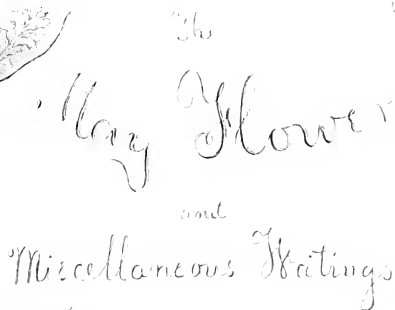 The
May Flower
and
Miscellaneous Writings